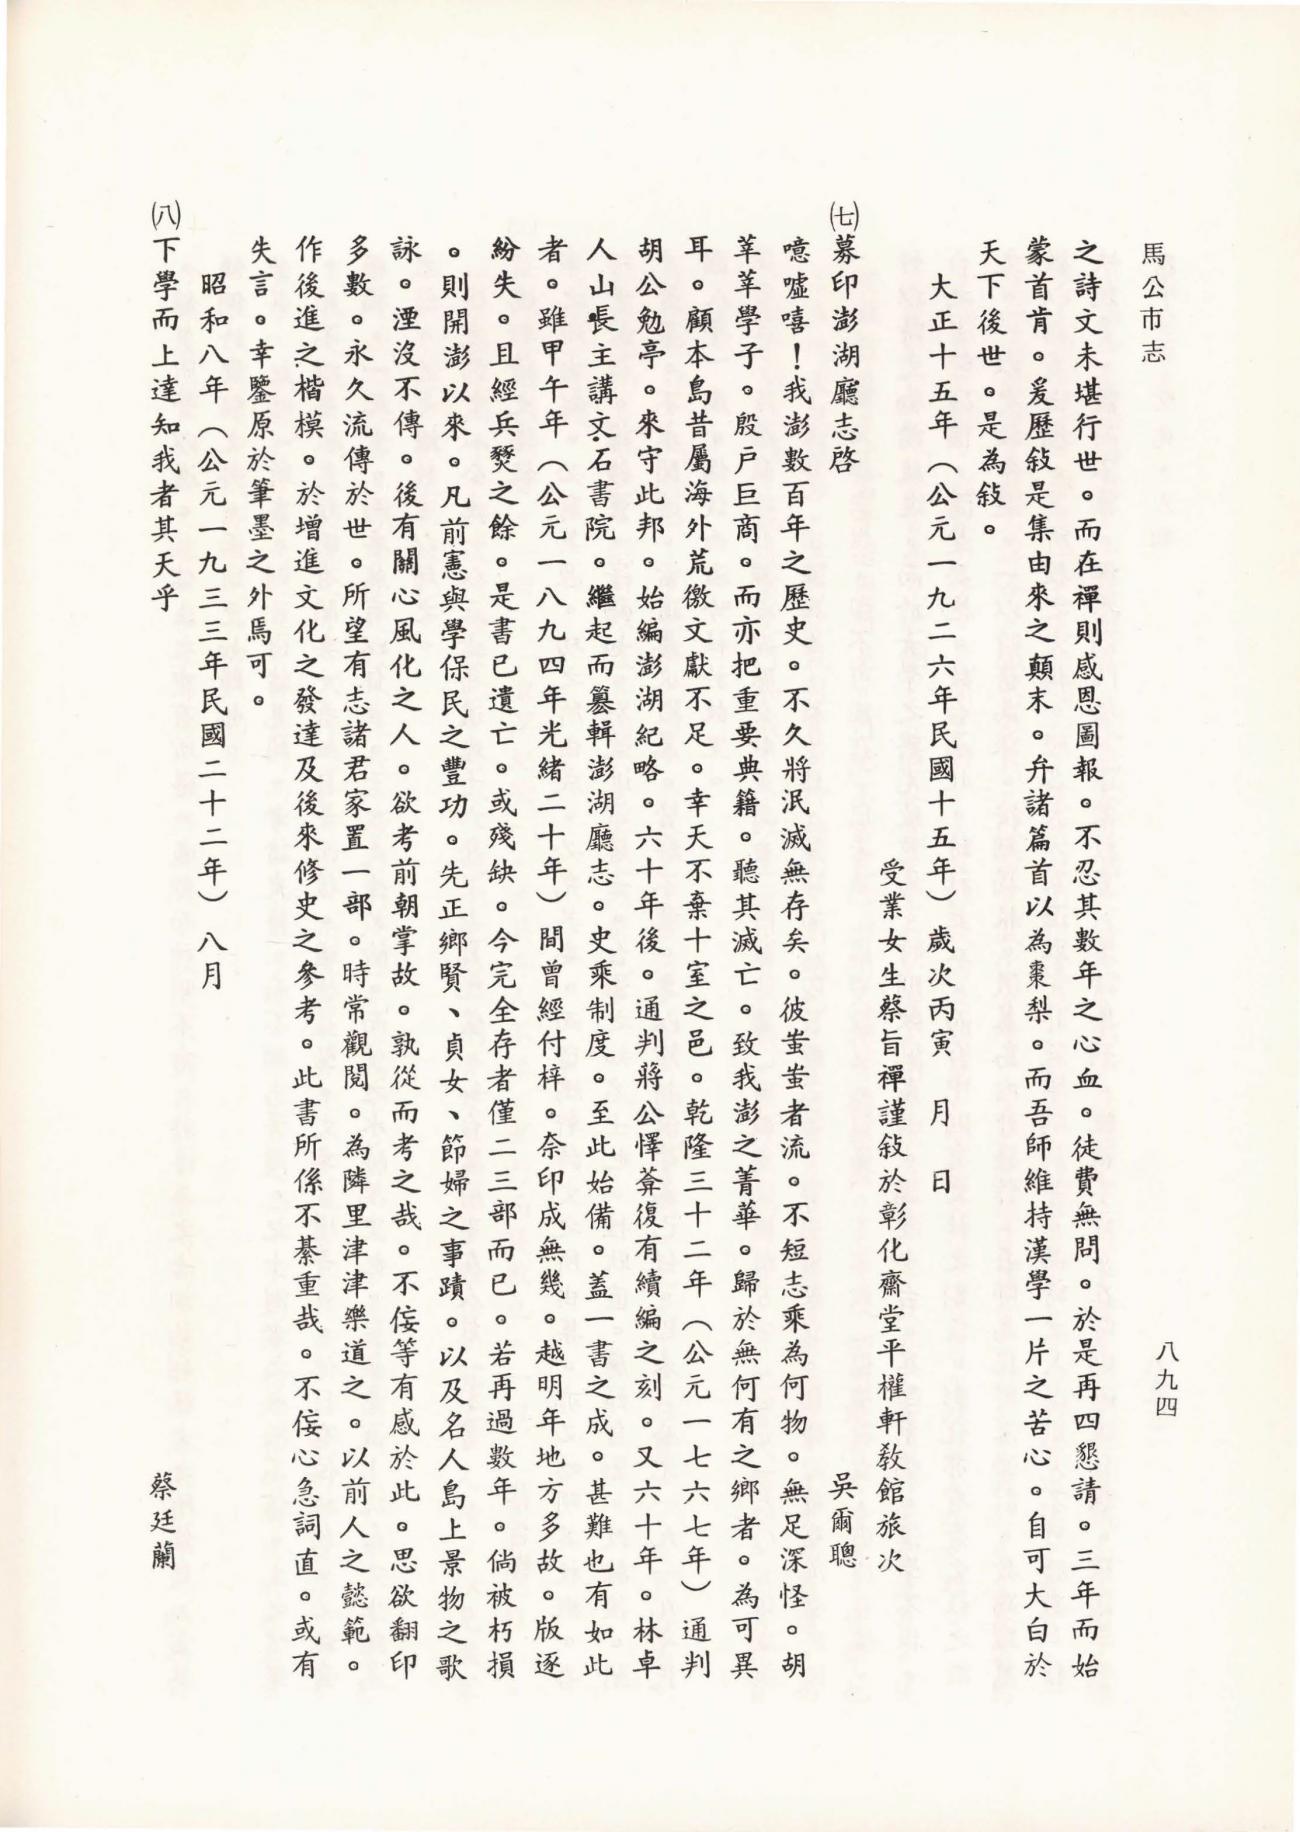 馬公市志
八九四
之詩文未堪行世。而在禪則感恩圖報。不忍其數年之心血。徒費無問。於是再四懇請。三年而始
蒙首肯。爰歷敍是集由來之顛末。弁諸篇首以為棗梨。而吾師維持漢學一片之苦心。自可大白於
天下後世。是為敍。
大正十五年（公元一九二六年民國十五年）歲次丙寅　月　日
受業女生蔡旨禪謹敍於彰化齋堂平權軒教館旅次
㈦募印澎湖廳志啓　吳爾聰
噫噓嘻！我澎數百年之歷史。不久將泯滅無存矣。彼蚩蚩者流。不短志乘為何物。無足深怪。胡
莘莘學子。殷戶巨商。而亦把重要典籍。聽其滅亡。致我澎之菁華。歸於無何有之鄉者。為可異
耳。顧本島昔屬海外荒徼文獻不足。幸天不棄十室之邑。乾隆三十二年（公元一七六七年）通判
胡公勉亭。來守此邦。始編澎湖紀略。六十年後。通判蔣公懌葊復有續編之刻。又六十年。林卓
人山長主講文石書院。繼起而纂輯澎湖廳志。史乘制度。至此始備。蓋一書之成。甚難也有如此
者。雖甲午年（公元一八九四年光緒二十年）間曾經付梓。奈印成無幾。越明年地方多故。版逐
紛失。且經兵燹之餘。是書已遺亡。或殘缺。今完全存者僅二三部而已。若再過數年。倘被朽損
。則開澎以來。凡前憲與學保民之豐功。先正鄉賢、貞女、節婦之事蹟。以及名人島上景物之歌
詠。湮沒不傳。後有關心風化之人。欲考前朝掌故。孰從而考之哉。不佞等有感於此。思欲翻印
多數。永久流傳於世。所望有志諸君家置一部。時常觀閱。為隣里津津樂道之。以前人之懿範。
作後進之楷模。於增進文化之發達及後來修史之參考。此書所係不綦重哉。不佞心急詞直。或有
失言。幸鑒原於筆墨之外焉可。
昭和八年（公元一九三三年民國二十二年）八月
㈧下學而上達知我者其天乎　蔡廷蘭